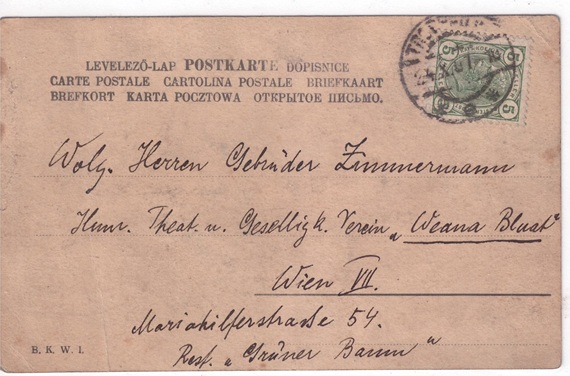 LEVELEZŐ-LAP POSTKARTE DOPISNICE
CARTE POSTALE CARTOLINA POSTALE BRIEFKAART
BREFKORT KARTA POCZTOWA ОТКРЫТОЕ ПИСЬМО.
5 5
5 5
Wolg. Herren Gebrüder Zimmermann
Hum. Theat. u. Geselligk. Verein „Weana Bluat"
Wien VII.
Mariahilferstrasse 54.
Rest. „Grüner Baum"
B. K. W. I.